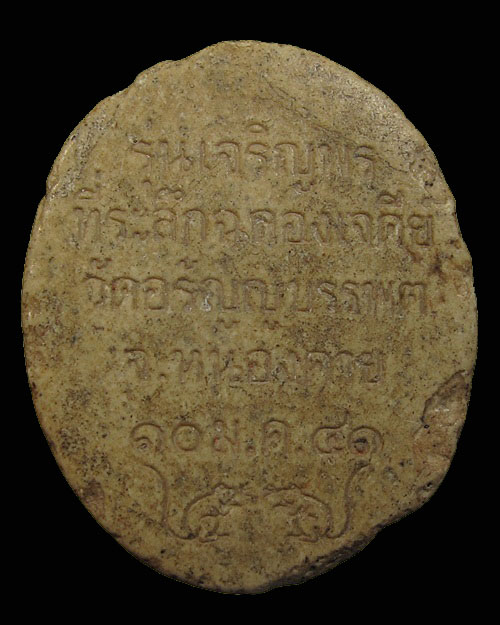 รุ่นเจริญพร
ที่ระลึกฉลองเจดีย์
วัดอรัญญบรรพต
จ.หนองคาย
๑๐ ม.ค. ๔๑